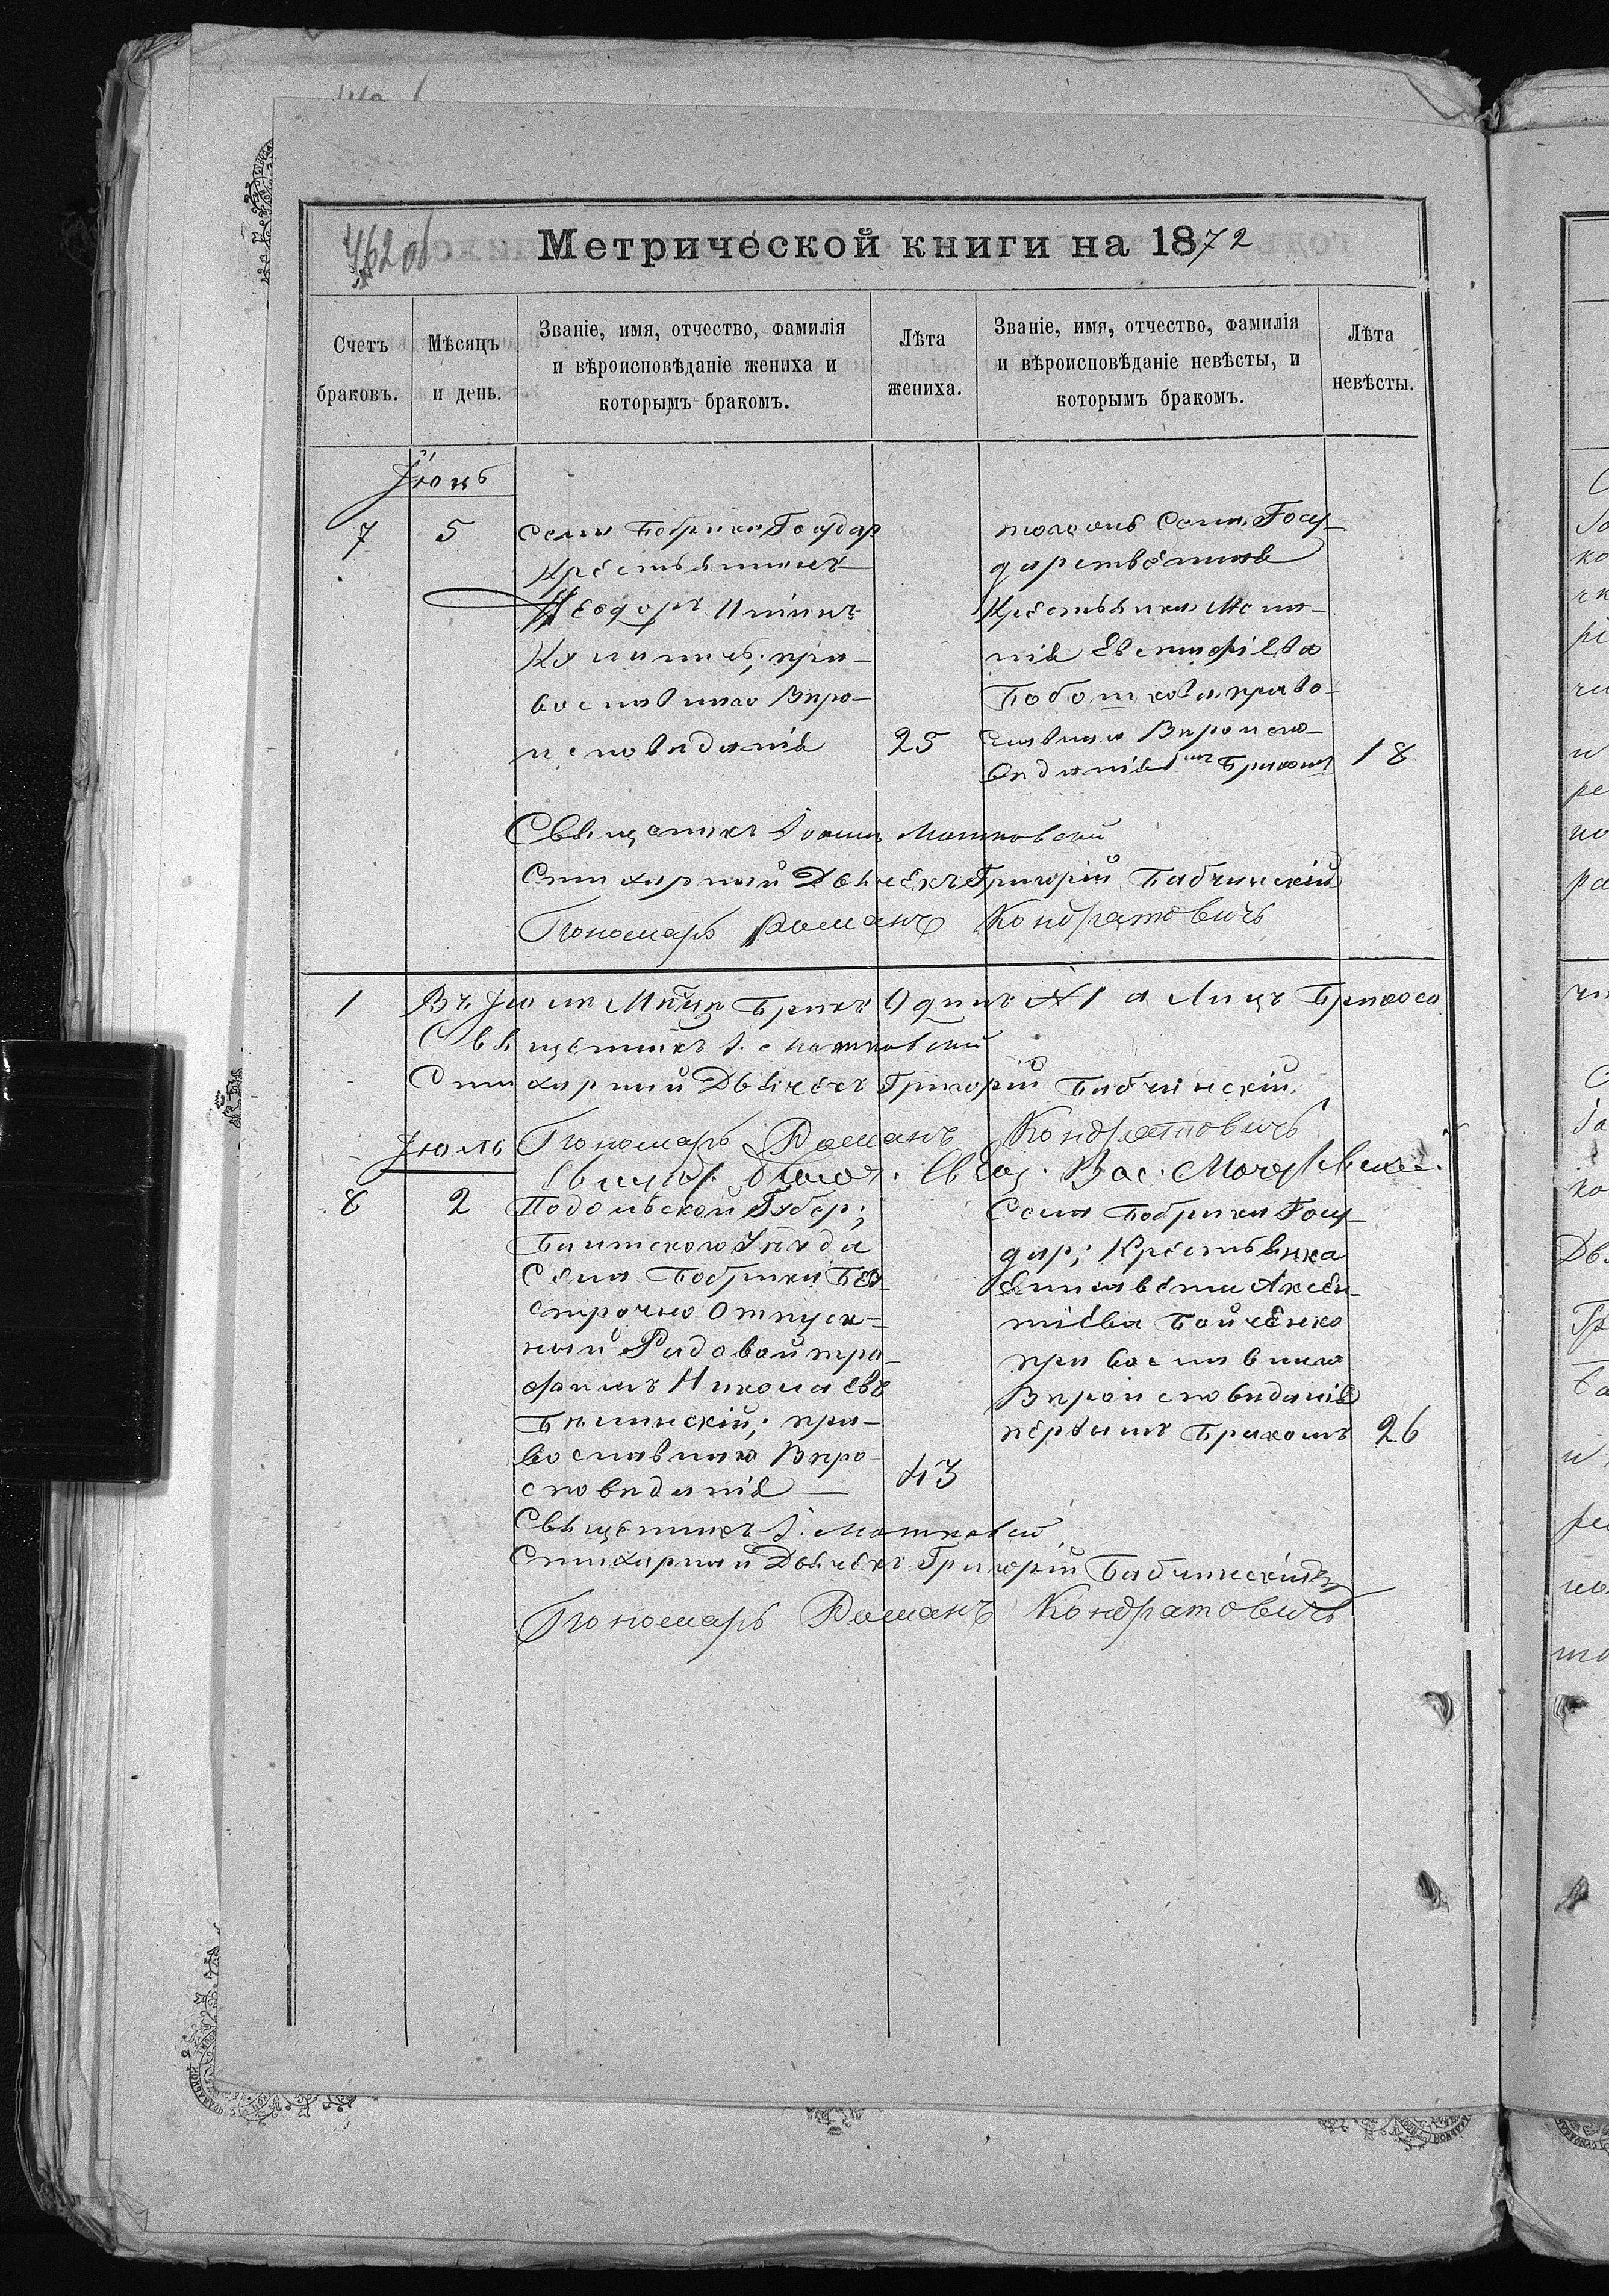 462 об
Метрической книги на 1872
Счетъ браковъ.
Мѣсяцъ и день.
Званіе, имя, отчество, фамилія и вѣроисповѣданіе жениха и которымъ бракомъ.
Лѣта жениха.
Званіе, имя, отчество, фамилія и вѣроисповѣданіе невѣсты, и которымъ бракомъ.
Лѣта невѣсты.
Іюнь
7
5
Села Бобрика Государ
Крестьянинъ
Ѳеодоръ
пра-
вославнаго Виро-
исповиданія
25
тогожъ Села Госу-
дарственная
Крестьянка Мела-
нія Евстафіева
право-
славнаго Вироиспо-
виданія 1мъ Бракомъ
18
Священикъ Іоанъ Матковскій
Стихарный Дьячекъ Григорій Бабчинскій
Пономарь Романъ Кондратовичъ
1
Въ Іюни Мѣсяцѣ Бракъ Одинъ № 1 а Лицъ Бракосо
Священикъ І. Матковскій
Стихарный Дьячекъ Григорій Бабчинскій.
Пономарь Романъ Кондратовичъ
Іюль
8
2
Подольской Губер;
Балтского Уѣзда
Села Бобрика Без-
строчно Отпуск-
ный Рядовой Тро-
фимъ Николаевъ
пра-
вославнаго Виро
споведанія
43
Села Бобрика Госу-
дар; Крестьянка
Елисавета Аксен-
тіева Бойченко
православнаго
Вироисповиданія
первымъ Бракомъ
26
Священикъ І. Матковскій
Стихарный Дьячекъ Григорій Бабчинскій
Пономарь Романъ Кондратовичъ